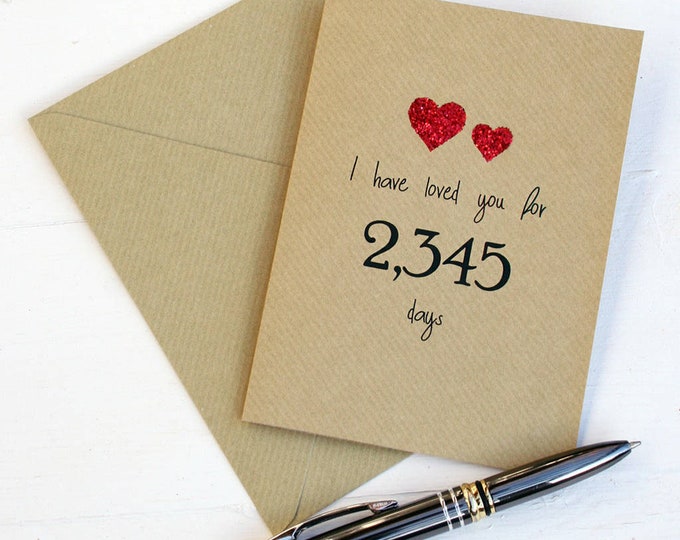 I have loved you for
2,345
days